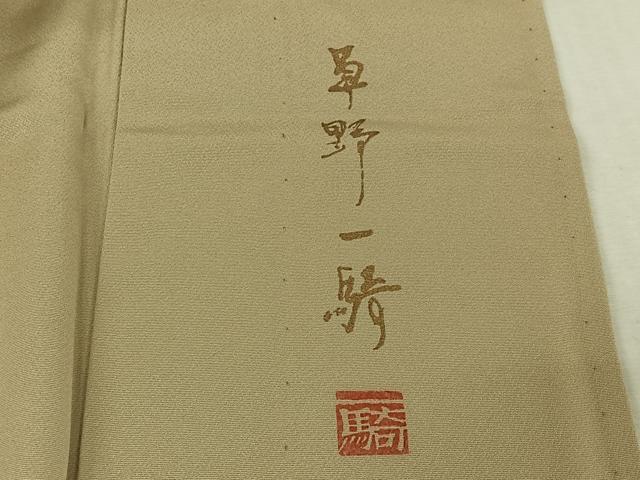 草野一騎
一騎